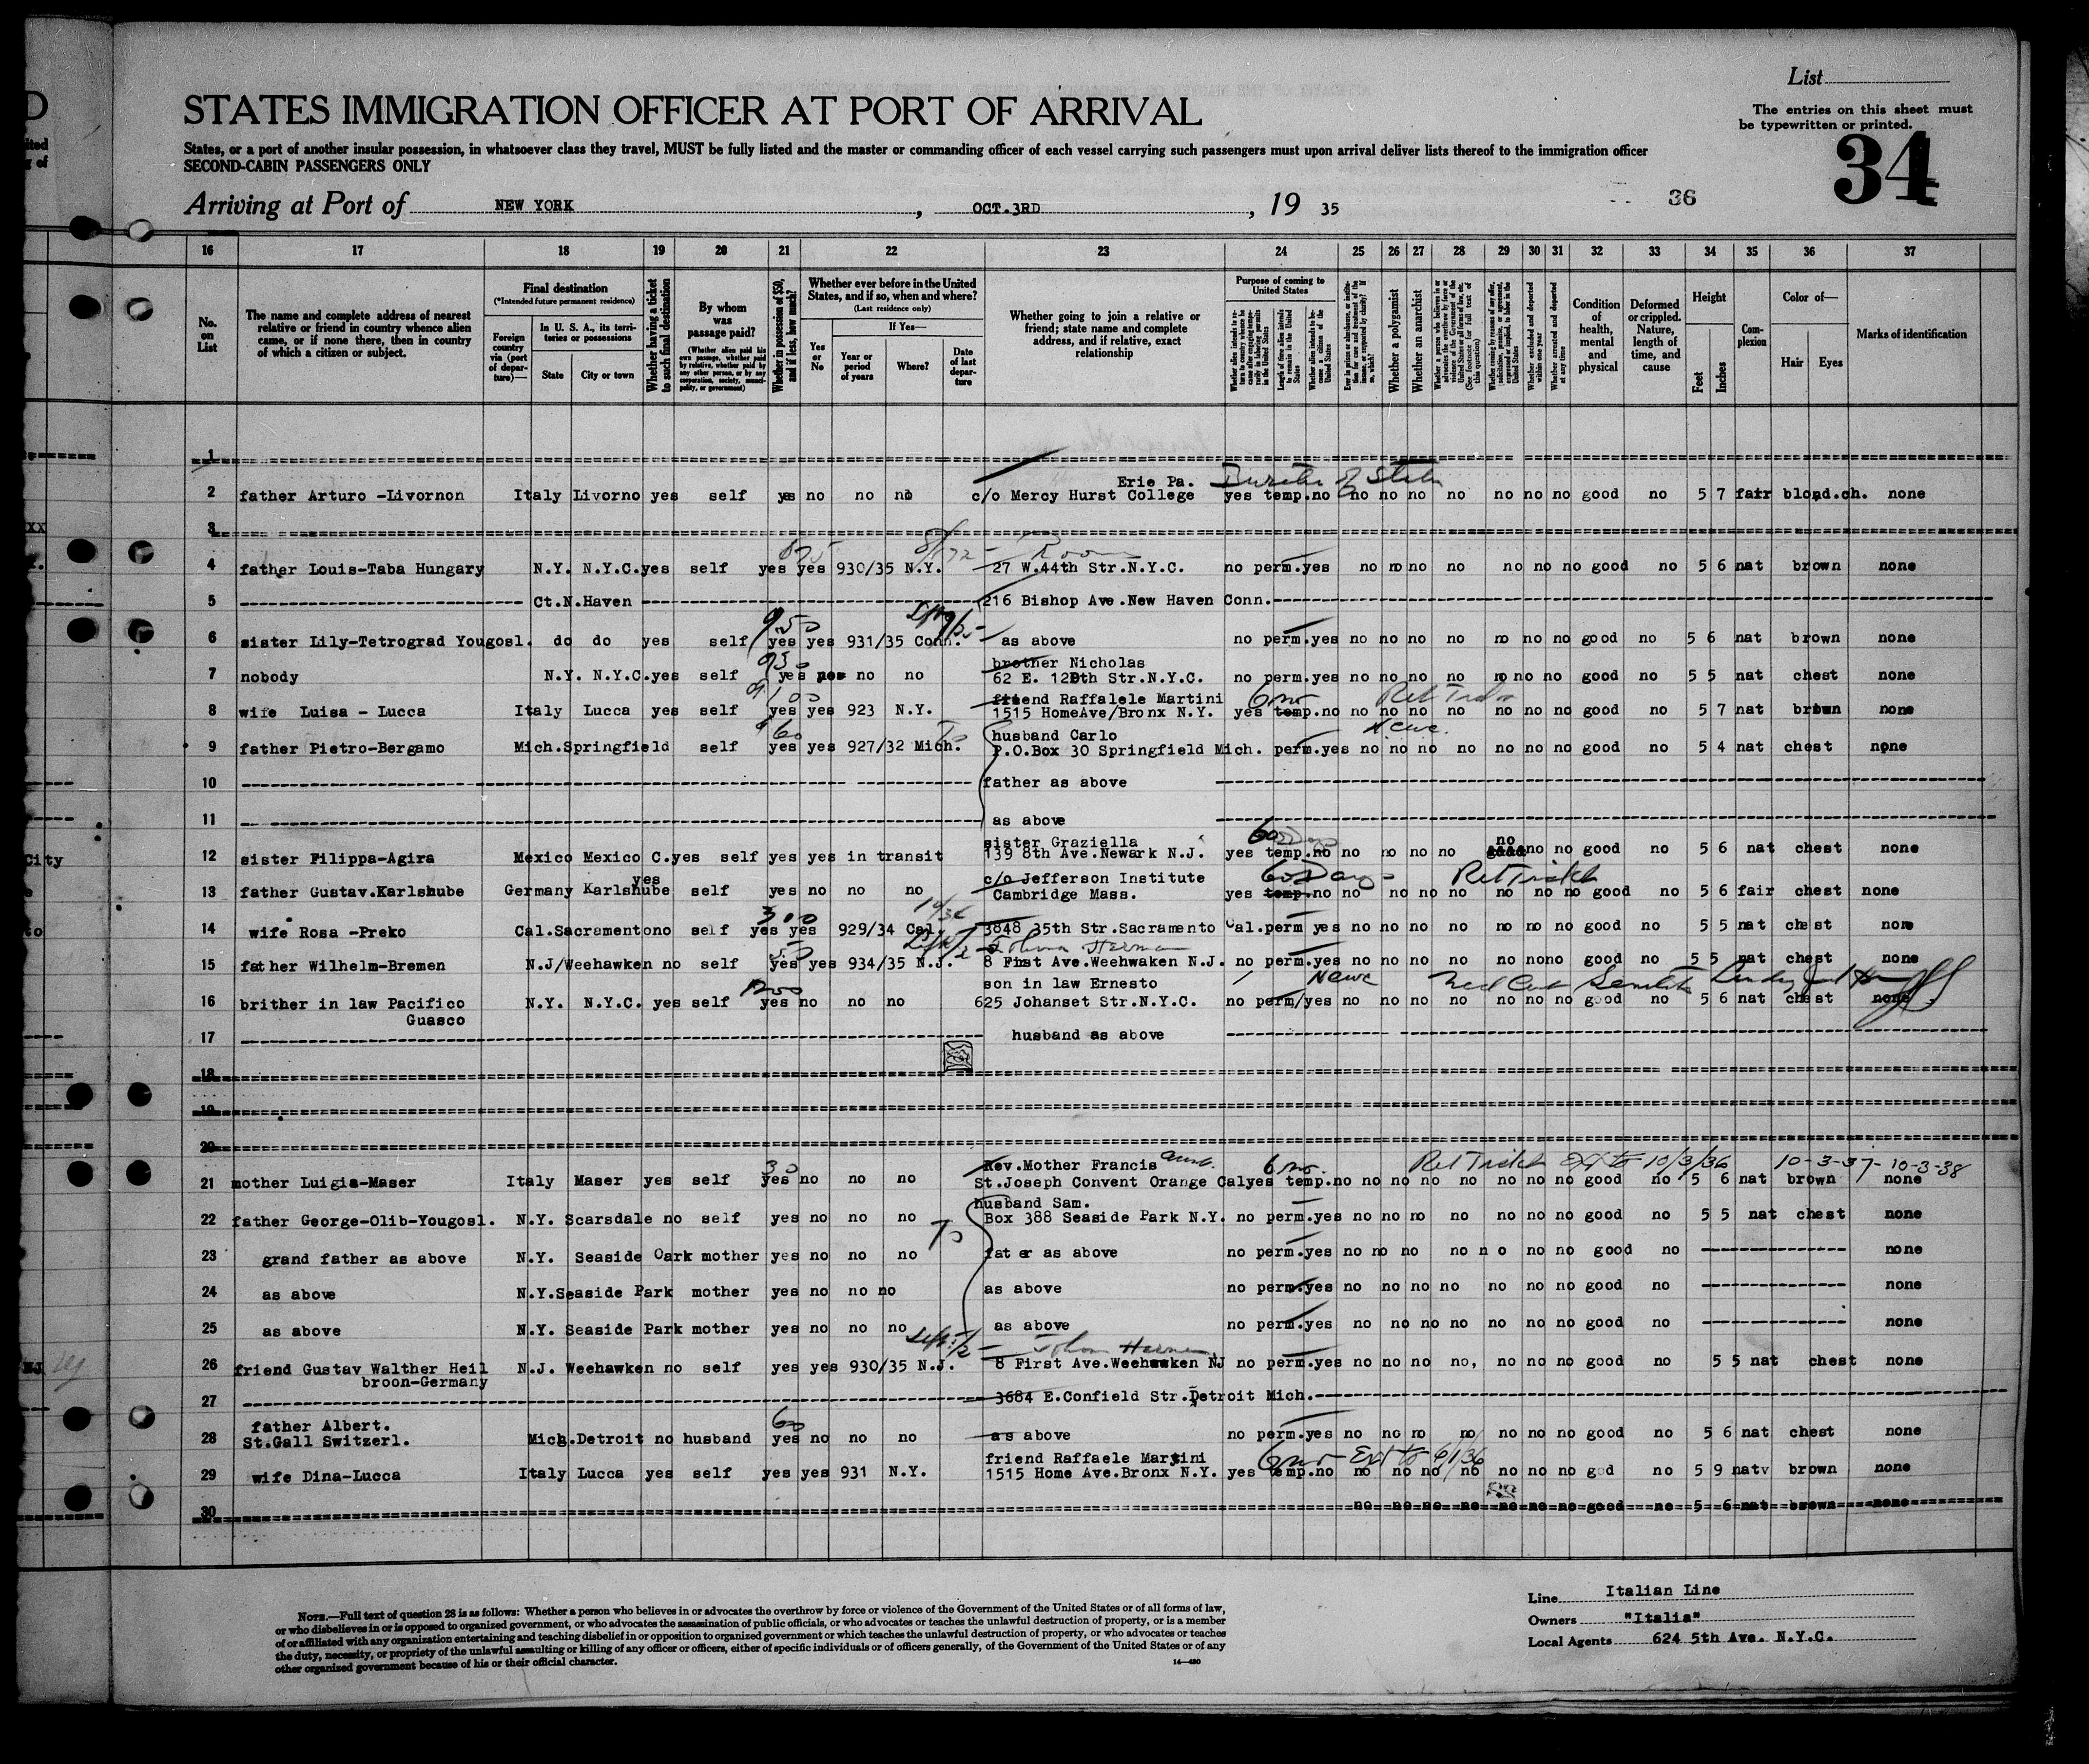 D
List
STATES IMMIGRATION OFFICER AT PORT OF ARRIVAL
The entries on this sheet must
be typewritten or printed.
States, or a port of another insular possession, in whatsoever class they travel, MUST be fully listed and the master or commanding officer of each vessel carrying such passengers must upon arrival deliver lists thereof to the immigration officer
SECOND-CABIN PASSENGERS ONLY
34
Arriving at Port of NEW YORK, OCT.3RD, 19 35
36
16 17 18 19 20 21 22 23 24 25 26 27 28 29 30 31 32 33 34 35 36 37
No. on List
The name and complete address of nearest relative or friend in country whence alien came, or if none there, then in country of which a citizen or subject.
Final destination
(*Intended future permanent residence)
Foreign country via (port of departure)—
In U. S. A., its territories or possessions
State
City or town
Whether having a ticket to such final destination
By whom was passage paid?
(Whether alien paid his own passage, whether paid by relative, whether paid by any other person, or by any corporation, society, municipality, or government)
Whether in possession of $50, and if less, how much?
Whether ever before in the United States, and if so, when and where?
(Last residence only)
Yes or No
If Yes—
Year or period of years
Where?
Date of last departure
Whether going to join a relative or friend; state name and complete address, and if relative, exact relationship
Purpose of coming to United States
Length of time alien intends to remain in the United States
Whether alien intends to become a citizen of the United States
Whether a polygamist
Whether an anarchist
Whether excluded and deported within one year
Whether arrested and deported at any time
Condition of health, mental and physical
Deformed or crippled. Nature, length of time, and cause
Height
Feet
Inches
Complexion
Color of—
Hair
Eyes
Marks of identification
1
Erie Pa.
2 father Arturo -Livornon Italy Livorno yes self yes no no no c/o Mercy Hurst College yes temp.no no no no no no no no good no 5 7 fair blond.ch. none
3
4 father Louis-Taba Hungary N.Y. N.Y.C.yes self yes yes 930/35 N.Y. 27 W.44th Str.N.Y.C. no perm.yes no no no no no no no good no 5 6 nat brown none
5 Ct.N.Haven 216 Bishop Ave.New Haven Conn.
6 sister Lily-Tetrograd Yougosl. do do yes self yes yes 931/35 Conn. as above no perm.yes no no no no no no no good no 5 6 nat brown none
brother Nicholas
7 nobody N.Y. N.Y.C.yes self yes no no 62 E. 120th Str.N.Y.C. no perm.yes no no no no no no no good no 5 5 nat chest none
6 mo
friend Raffalele Martini
8 wife Luisa - Lucca Italy Lucca yes self yes yes 923 N.Y. 1515 HomeAve/Bronx N.Y. yes temp.no no no no no no no no good no 5 7 nat brown none
60
husband Carlo
9 father Pietro-Bergamo Mich.Springfield self yes yes 927/32 Mich. P.O.Box 30 Springfield Mich. perm.yes no no no no no no no good no 5 4 nat chest none
10 father as above
11 as above
sister Graziella
12 sister Filippa-Agira Mexico Mexico C.yes self yes yes in transit 139 8th Ave.Newark N.J. yes temp.no no no no no no no no good no 5 6 nat chest none
60 Days
c/o Jefferson Institute
13 father Gustav.Karlshube Germany Karlshube yes self yes no no no Cambridge Mass. yes temp.no no no no no no no no good no 5 6 fair chest none
300
14 wife Rosa -Preko Cal.Sacramentono self yes yes 929/34 Cal. 3848 35th Str.Sacramento Cal.perm yes no no no no no no no good no 5 5 nat chest none
15 father Wilhelm-Bremen N.J/Weehawken no self yes yes 934/35 N.J. 8 First Ave.Weehwaken N.J. no perm.yes no no no no no nono good no 5 5 nat chest none
1200
son in law Ernesto
16 brither in law Pacifico N.Y. N.Y.C. yes self yes no no no 625 Johanset Str.N.Y.C. no perm/yes no no no no no no no good no 5 6 nat chest none
Guasco
17 husband as above
18
19
20
30
Rev.Mother Francis aunt.
6 mo. Ret Ticket Ext to 10/3/36 10-3-37- 10-3-38
21 mother Luigia-Maser Italy Maser yes self yes no no no St.Joseph Convent Orange Calyes temp.no no no no no no no no good no 5 6 nat brown none
husband Sam.
22 father George-Olib-Yougosl. N.Y. Scarsdale no self yes no no no Box 388 Seaside Park N.Y. no perm.yes no no no no no no no good no 5 5 nat chest none
23 grand father as above N.Y. Seaside Oark mother yes no no no fat er as above no perm.yes no no no no n o no no good no none
24 as above N.Y.Seaside Park mother yes no no no as above no perm.yes no no no no no no no good no none
25 as above N.Y. Seaside Park mother yes no no no as above no perm.yes no no no no no no no good no none
26 friend Gustav Walther Heil N.J. Weehawken no self yes yes 930/35 N.J. 8 First Ave.Weehawken NJ no perm.yes no no no no, no no no good no 5 5 nat chest none
broon-Germany
27 3684 E.Confield Str.Detroit Mich.
father Albert.
60
28 St.Gall Switzerl. Mich.Detroit no husband yes no no no as above no perm.yes no no no no no no no good no 5 6 nat chest none
6 mo Ext to 6/1/36
friend Raffaele Martini
29 wife Dina-Lucca Italy Lucca yes self yes yes 931 N.Y. 1515 Home Ave.Bronx N.Y. yes temp.no no no no no no no no god no 5 9 natv brown none
30 no no no no no no no good no 5 6 nat brown none
NOTE.—Full text of question 28 is as follows: Whether a person who believes in or advocates the overthrow by force or violence of the Government of the United States or of all forms of law,
or who disbelieves in or is opposed to organized government, or who advocates the assassination of public officials, or who advocates or teaches the unlawful destruction of property, or is a member
of or affiliated with any organization entertaining and teaching disbelief in or opposition to organized government or which teaches the unlawful destruction of property, or who advocates or teaches
the duty, necessity, or propriety of the unlawful assaulting or killing of any officer or officers, either of specific individuals or of officers generally, of the Government of the United States or of any
other organized government because of his or their official character.
14—430
Line Italian Line
Owners "Italia"
Local Agents 624 5th Ave. N.Y.C.